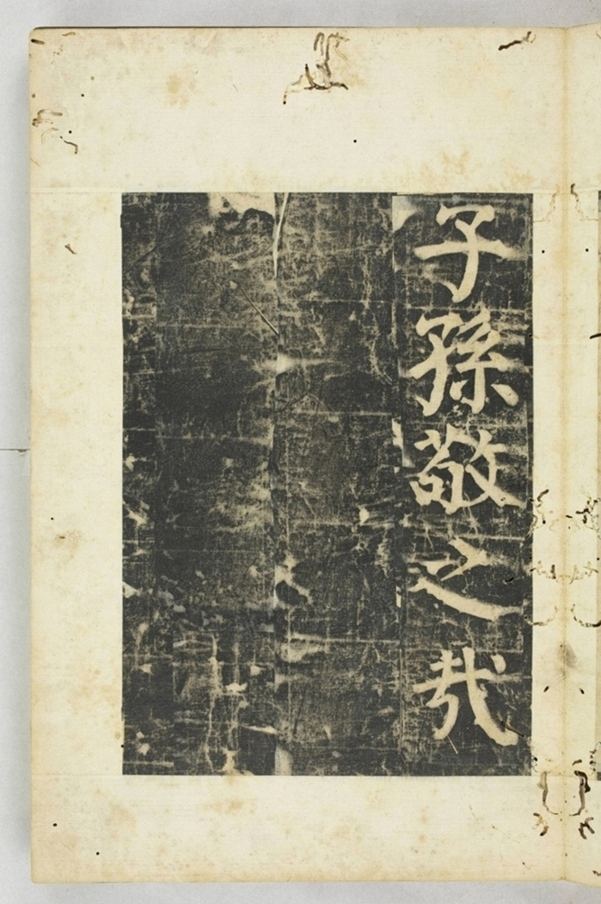 子孫敬之哉